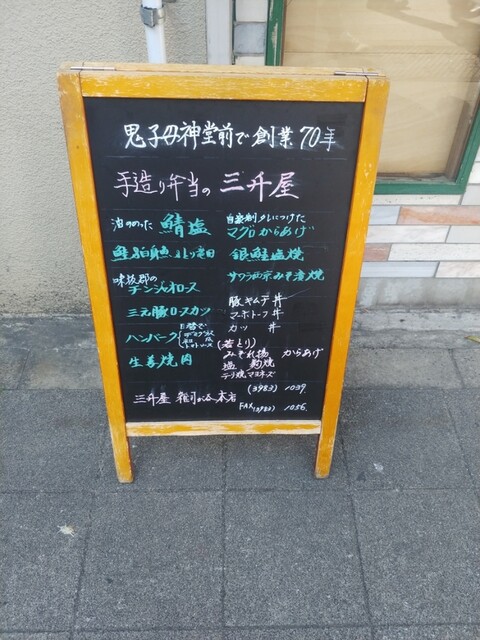 鬼子母神堂前で創業70年
手造り弁当の 三升屋
油ののった 鯖塩
鮭
味抜群の
チンジャオロース
三元豚ロースカツ
ハンバーグ 日替で デミグラス 和風
生姜焼肉
自家製タレにつけた
マグロからあげ
銀鮭塩焼
サワラ西京みそ漬焼
豚キムチ丼
マーボトーフ丼
カツ 丼
(若とり)
みぞれ揚 からあげ
塩 麹焼
テリ焼マヨネーズ
三升屋 雑司が谷本店
(3983) 1039.
FAX (3983) 1056.